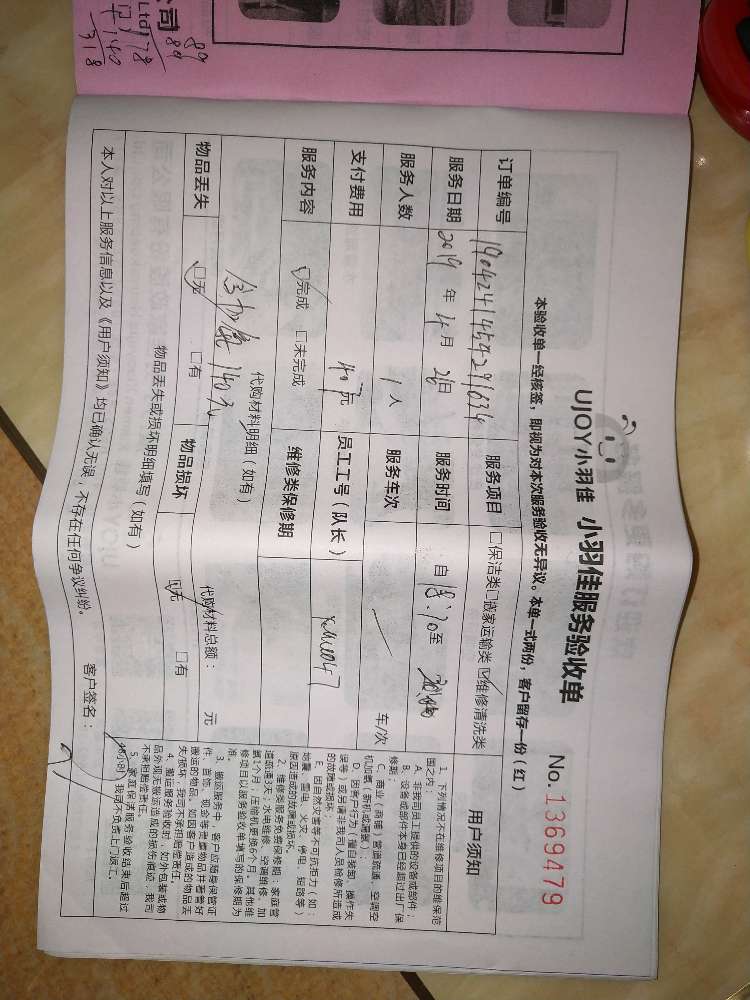 公司
Ltd
89
89
178
140
318
UJOY小羽佳 小羽佳服务验收单 No.1369479
本验收单一经核签，即视为对本次服务验收无异议。本单一式两份，客户留存一份（红）
订单编号 服务项目 □保洁类□搬家运输类☑维修清洗类 用户须知
服务日期 2019 年 4 月 26 日 服务时间 自 至
服务人数 1 人 服务车次 车/次
支付费用 元 员工工号（队长）
服务内容 ☑完成 □未完成 维修类保修期
代购材料明细（如有） 代购材料总额： 元
140元
物品丢失 ☑无 □有 物品损坏 ☑无 □有
物品丢失或损坏明细填写（如有）
本人对以上服务信息以及《用户须知》均已确认无误，不存在任何争议纠纷。 客户签名：
1、下列情况不在维修项目的维保范
围之内：
A、非我司员工提供的设备或部件；
B、设备或部件本身已经超过出厂保
修期；
C、商业（商铺）管道疏通、空调空
机加氟（新机或漏氟）
D、因客户行为（擅自装卸、操作失
误等）或另请非我司人员检修所造成
的故障或损坏；
E、因自然灾害等不可抗拒力（如：
地震、雷电、火灾、停电、短路等）
原因造成的故障或损坏。
2、维修类服务免费保修期：家庭管
道疏通3天；水电维修、空调维修、加
氟1个月；压缩机更换6个月。其他维
修项目以服务验收单填写的保修期为
准。
3、搬运服务中，客户应随身保管证
件、首饰、现金等贵重物品并看管好
搬运的物品。如因客户造成的物品丢
失/损坏，我司不承担赔偿责任。
4、搬运服务验收时，如外包装或物
品外观无搬运造成的损伤痕迹，我司
不承担赔偿责任。
5、家庭保洁服务验收结束后超过
48小时，我司不负责上门返工。